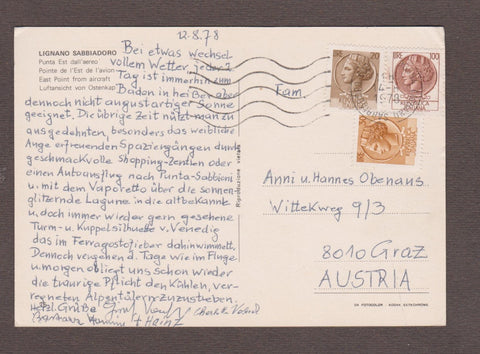 12.8.78
LIGNANO SABBIADORO
Punta Est dall'aereo
Pointe de l'Est de l'avion
East Point from aircraft
Luftansicht von Ostenkap
Bei etwas wechsel-
vollem Wetter, jeder
Tag ist immerhin zum
Baden in heißer aber
dennoch nicht augustartiger Sonne
geeignet. Die übrige Zeit nützt man zu
ausgedehnten, besonders das weibliche
Auge erfreuenden Spaziergängen durch
geschmackvolle Shopping-Zentren oder
einen Autoausflug nach Punta-Sabbioni
u. mit dem Vaporetto über die sonnen-
glitzernde Lagune in die altbekannte
u. doch immer wieder gern gesehene
Turm- u. Kuppelsilhouette v. Venedig
das im Ferragostofieber dahinwimmelt.
Dennoch vergehen d. Tage wie im Fluge
u. morgen obliegt uns schon wieder
die traurige Pflicht den kühlen, ver-
regneten Alpentälern zuzustreben.
Herzl. Grüße
+ Heinz
Riproduzione vietata
Fam.
Anni u. Hannes Obenaus
Wittekweg 9/3
8010 Graz
AUSTRIA
LIRE 100
DA FOTOCOLOR KODAK EKTACHROME